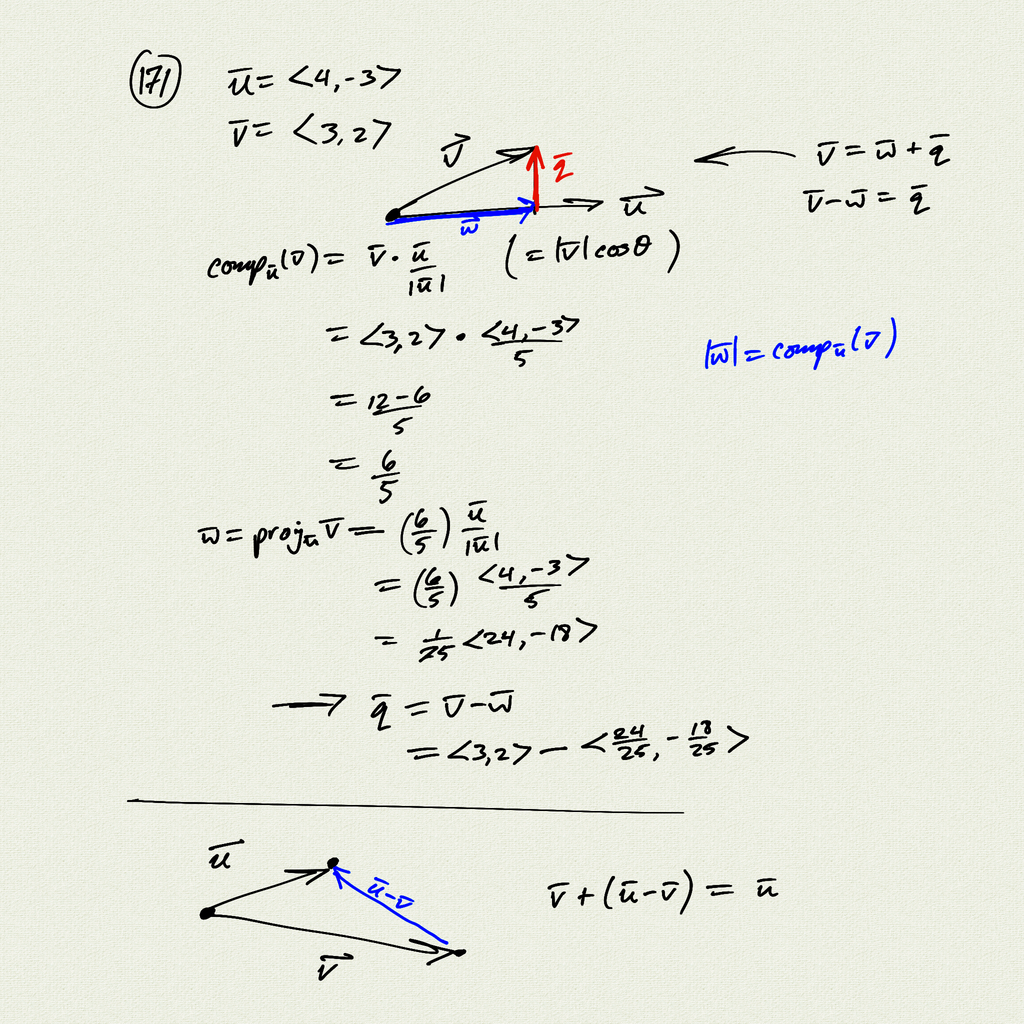 (171) u̅ = <4, -3>
v̅ = <3, 2>
v⃗ q̅ w̅ u⃗
v̅ = w̅ + q̅
v̅ - w̅ = q̅
comp_u̅(v̅) = v̅ · u̅/|u̅| (= |v̅| cos θ)
= <3, 2> · <4, -3>/5
|w̅| = comp_u̅(v̅)
= 12 - 6/5
= 6/5
w̅ = proj_u̅ v̅ = (6/5) u̅/|u̅|
= (6/5) <4, -3>/5
= 1/25 <24, -18>
→ q̅ = v̅ - w̅
= <3, 2> - <24/25, -18/25>
u⃗ u̅-v̅ v⃗
v̅ + (u̅ - v̅) = u̅